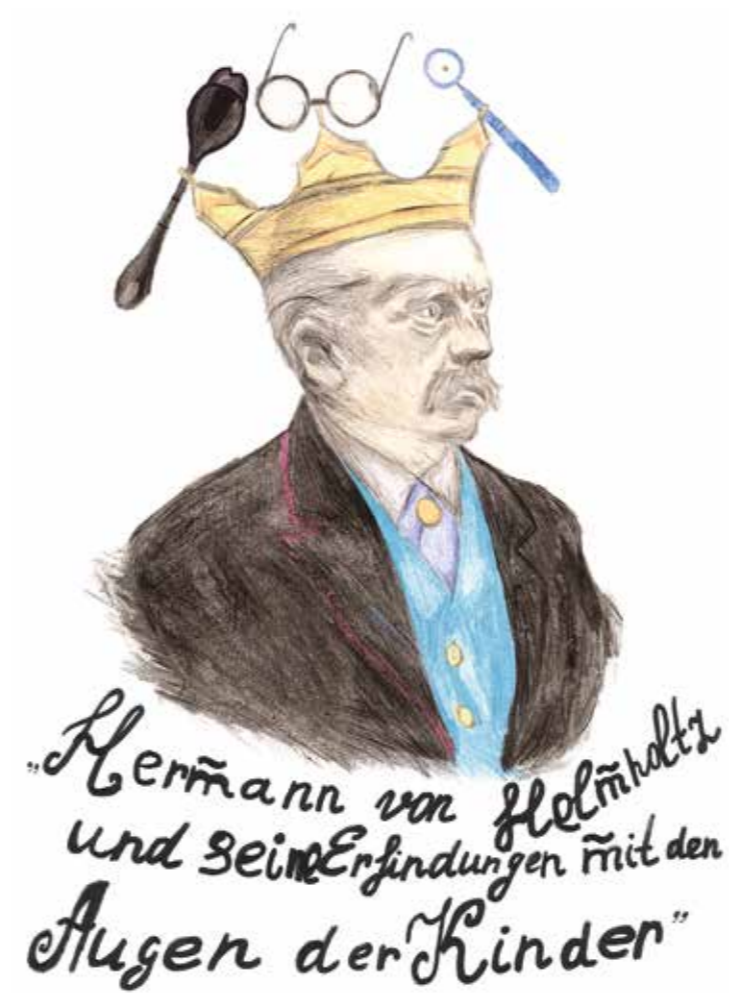 „Hermann von Helmholtz
und seine Erfindungen mit den
Augen der Kinder”